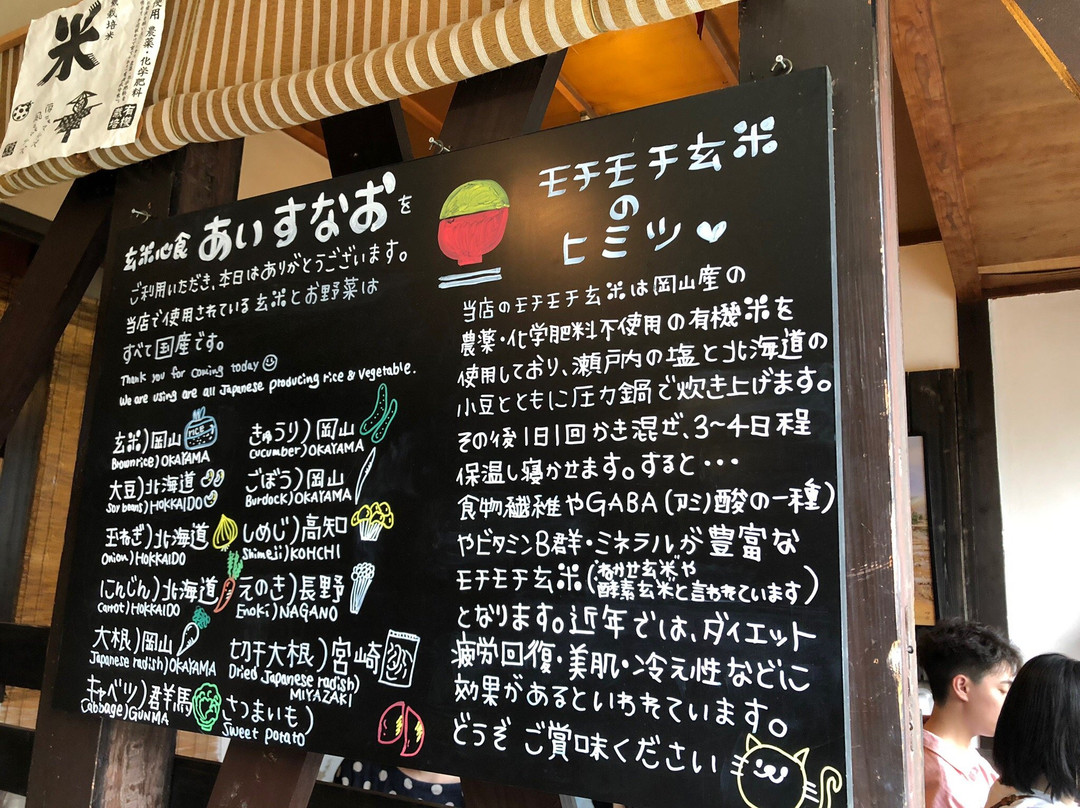 米
栽培米
使用 農薬・化学肥料
有機
栽培
玄米心食 あいすなおを
ご利用いただき、本日はありがとうございます。
当店で使用されている玄米とお野菜は
すべて国産です。
Thank you for coming today
We are using are all Japanese producing rice & vegetable.
玄米)岡山
Brown rice)OKAYAMA
RICE
大豆)北海道
Soy beans)HOKKAIDO
玉ねぎ)北海道
Onion)HOKKAIDO
にんじん)北海道
Carrot)HOKKAIDO
大根)岡山
Japanese radish)OKAYAMA
キャベツ)群馬
Cabbage)GUNMA
きゅうり)岡山
Cucumber)OKAYAMA
ごぼう)岡山
Burdock)OKAYAMA
しめじ)高知
Shimeji)KOHCHI
えのき)長野
Enoki)NAGANO
切干大根)宮崎
Dried Japanese radish)
MIYAZAKI
さつまいも)
Sweet potato)
モチモチ玄米
の
ヒミツ♥
当店のモチモチ玄米は岡山産の
農薬・化学肥料不使用の有機米を
使用しており、瀬戸内の塩と北海道の
小豆とともに圧力鍋で炊き上げます。
その後1日1回かき混ぜ、3〜4日程
保温し寝かせます。すると・・・
食物繊維やGABA(アミノ酸の一種)
やビタミンB群・ミネラルが豊富な
モチモチ玄米(ねかせ玄米や
酵素玄米と言われています)
となります。近年では、ダイエット
疲労回復・美肌・冷え性などに
効果があるといわれています。
どうぞ ご賞味ください